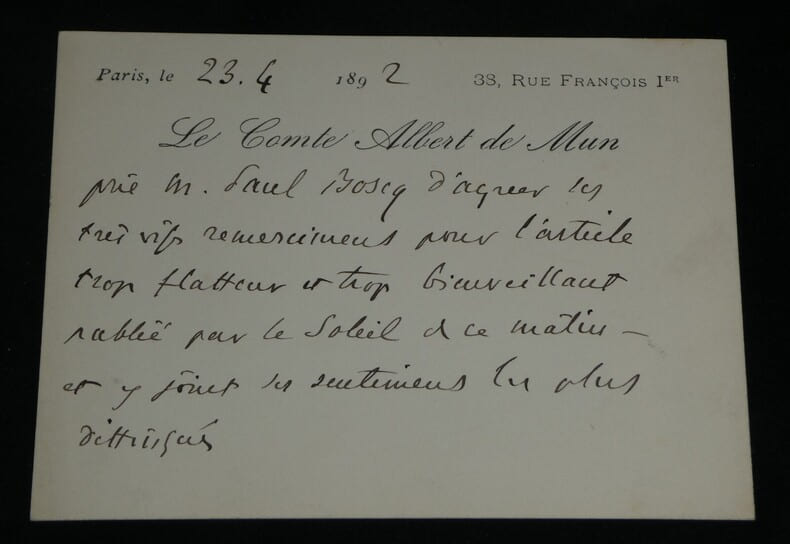 Paris, le 23.4 1892 38, RUE FRANÇOIS IER
Le Comte Albert de Mun
prie M. Paul Boscq d'agréer ses
très vifs remerciemens pour l'article
trop flatteur et trop bienveillant
publié par le Soleil de ce matin —
et y joint ses sentimens les plus
distingués